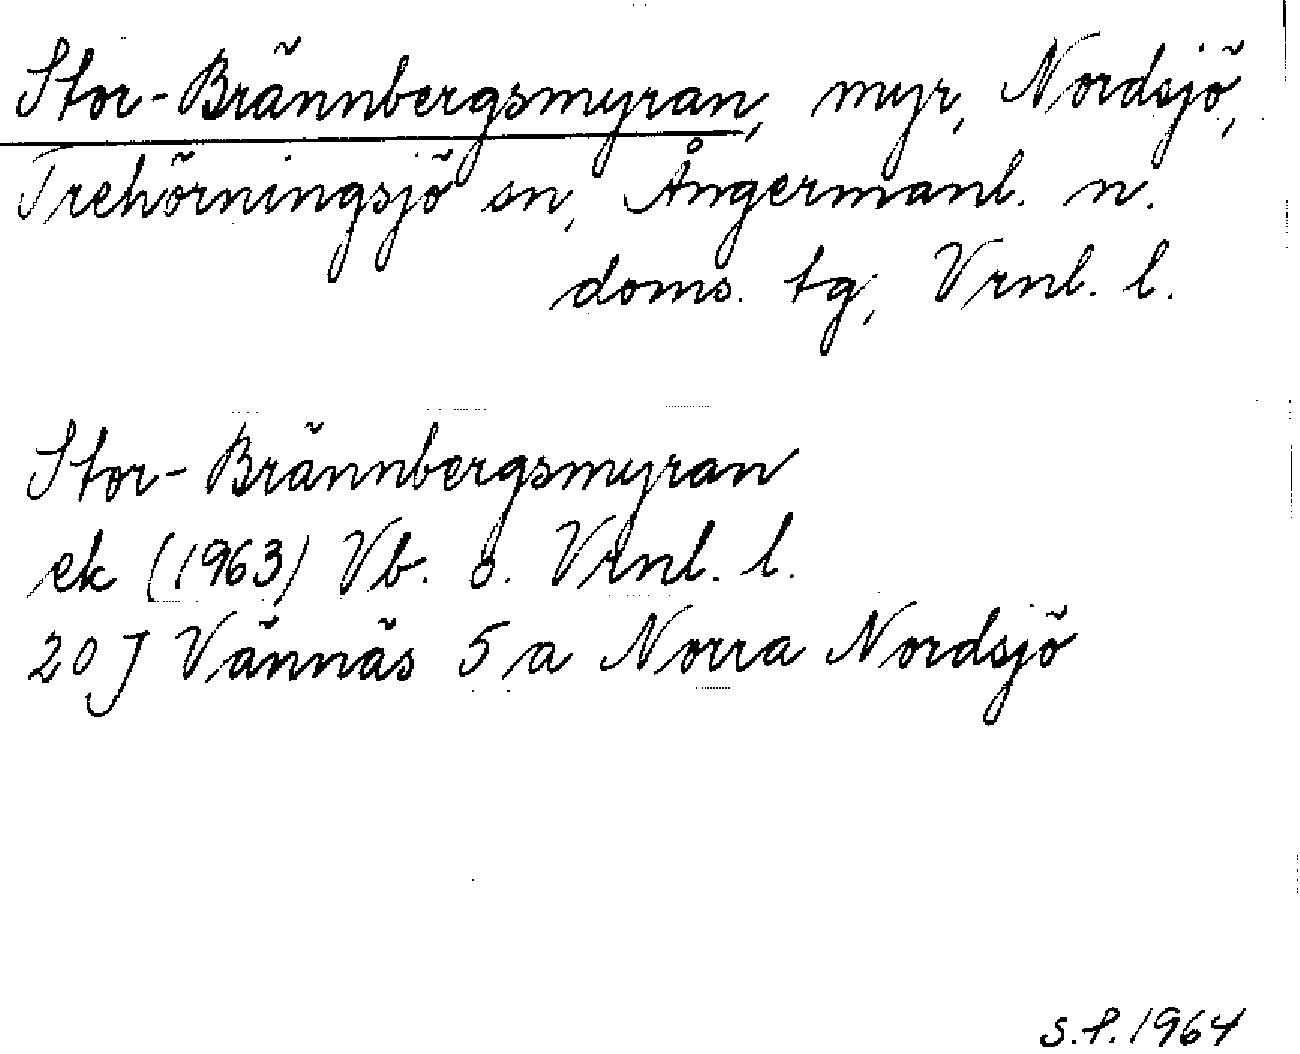 Stor-Brännbergsmyran, myr, Nordsjö,
Trehörningsjö sn, Ångermanl. n.
doms. tg, Vrnl. l.
Stor-Brännbergsmyran
ek (1963) Vb. o. Vrnl. l.
20 J Vännäs 5 a Norra Nordsjö
S.P. 1964